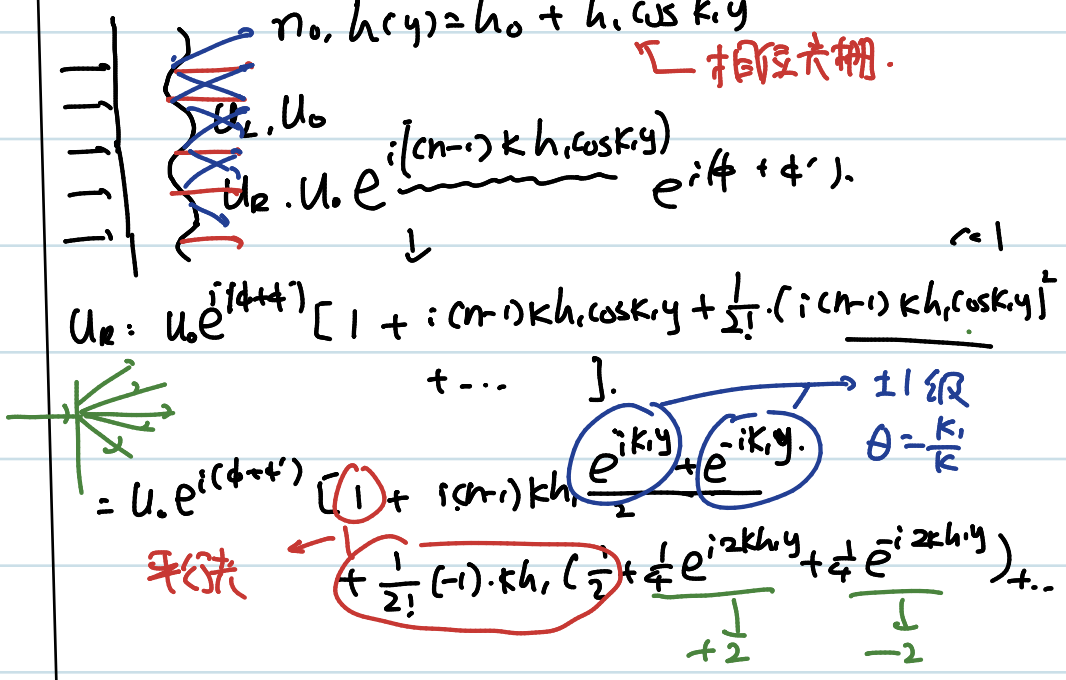 n₀, h(y) = h₀ + h₁ cos k₁y
相位光栅.
U_L, U₀
U_R. U₀ e^{i((n-1) k h₁ cos k₁y)} e^{i(ϕ + ϕ').
~1
U_R: U₀ e^{i(ϕ+ϕ')} [ 1 + i (n-1) k h₁ cos k₁y + \frac{1}{2!}·( i (n-1) k h₁ cos k₁y ]²
+ ... ].
±1级
θ = \frac{k₁}{k}
= U₀ e^{i(ϕ+ϕ')} [ 1 + i(n-1) k h₁ \frac{e^{ik₁y} + e^{-ik₁y}.}{2}
平行光
+ \frac{1}{2!} (-1)·k h₁ ( \frac{1}{2} + \frac{1}{4} e^{i2kh₁y} + \frac{1}{4} e^{-i2kh₁y} ) + ...
+2 −2